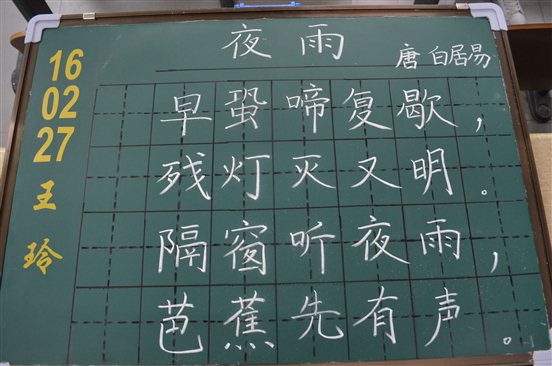 夜雨
唐 白居易
16
02
27
王
玲
早蛩啼复歇，
残灯灭又明。
隔窗听夜雨，
芭蕉先有声。